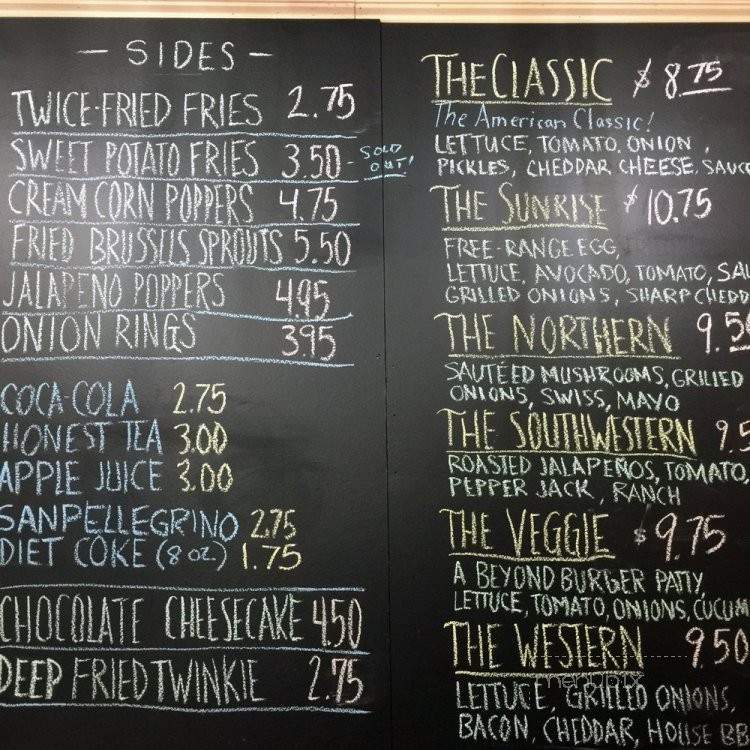 — SIDES —
TWICE-FRIED FRIES 2.75
SWEET POTATO FRIES 3.50 - SOLD OUT!
CREAM CORN POPPERS 4.75
FRIED BRUSSELS SPROUTS 5.50
JALAPENO POPPERS 4.95
ONION RINGS 3.95
COCA-COLA 2.75
HONEST TEA 3.00
APPLE JUICE 3.00
SANPELLEGRINO 2.75
DIET COKE (8 OZ) 1.75
CHOCOLATE CHEESECAKE 4.50
DEEP FRIED TWINKIE 2.75
THE CLASSIC $8.75
The American Classic!
LETTUCE, TOMATO, ONION,
PICKLES, CHEDDAR CHEESE, SAUC
THE SUNRISE $10.75
FREE-RANGE EGG,
LETTUCE, AVOCADO, TOMATO, SAU
GRILLED ONIONS, SHARP CHEDD
THE NORTHERN 9.50
SAUTÉED MUSHROOMS, GRILLED
ONIONS, SWISS, MAYO
THE SOUTHWESTERN 9.5
ROASTED JALAPEÑOS, TOMATO,
PEPPER JACK, RANCH
THE VEGGIE $9.75
A BEYOND BURGER PATTY,
LETTUCE, TOMATO, ONIONS, CUCUM
THE WESTERN 9.50
LETTUCE, GRILLED ONIONS,
BACON, CHEDDAR, HOUSE BB